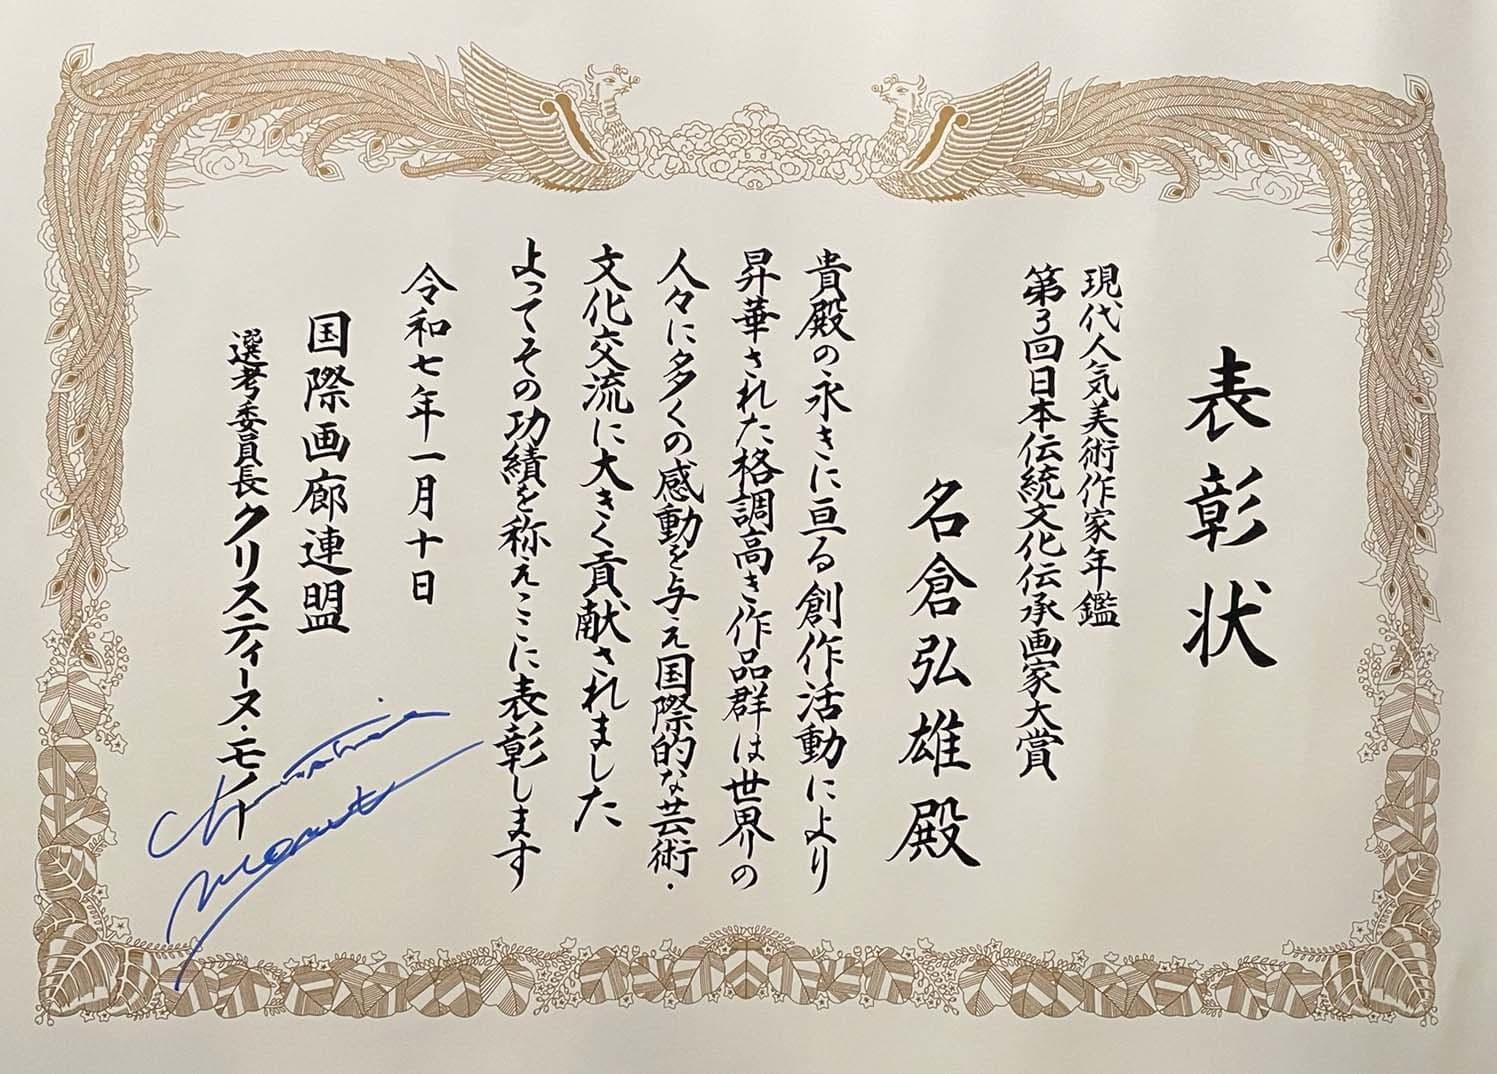 表彰状
現代人気美術作家年鑑
第3回日本伝統文化伝承画家大賞
名倉弘雄殿
貴殿の永きに亘る創作活動により
昇華された格調高き作品群は世界の
人々に多くの感動を与え国際的な芸術・
文化交流に大きく貢献されました
よってその功績を称えここに表彰します
令和七年一月十日
国際画廊連盟
選考委員長クリスティーヌ・モノー